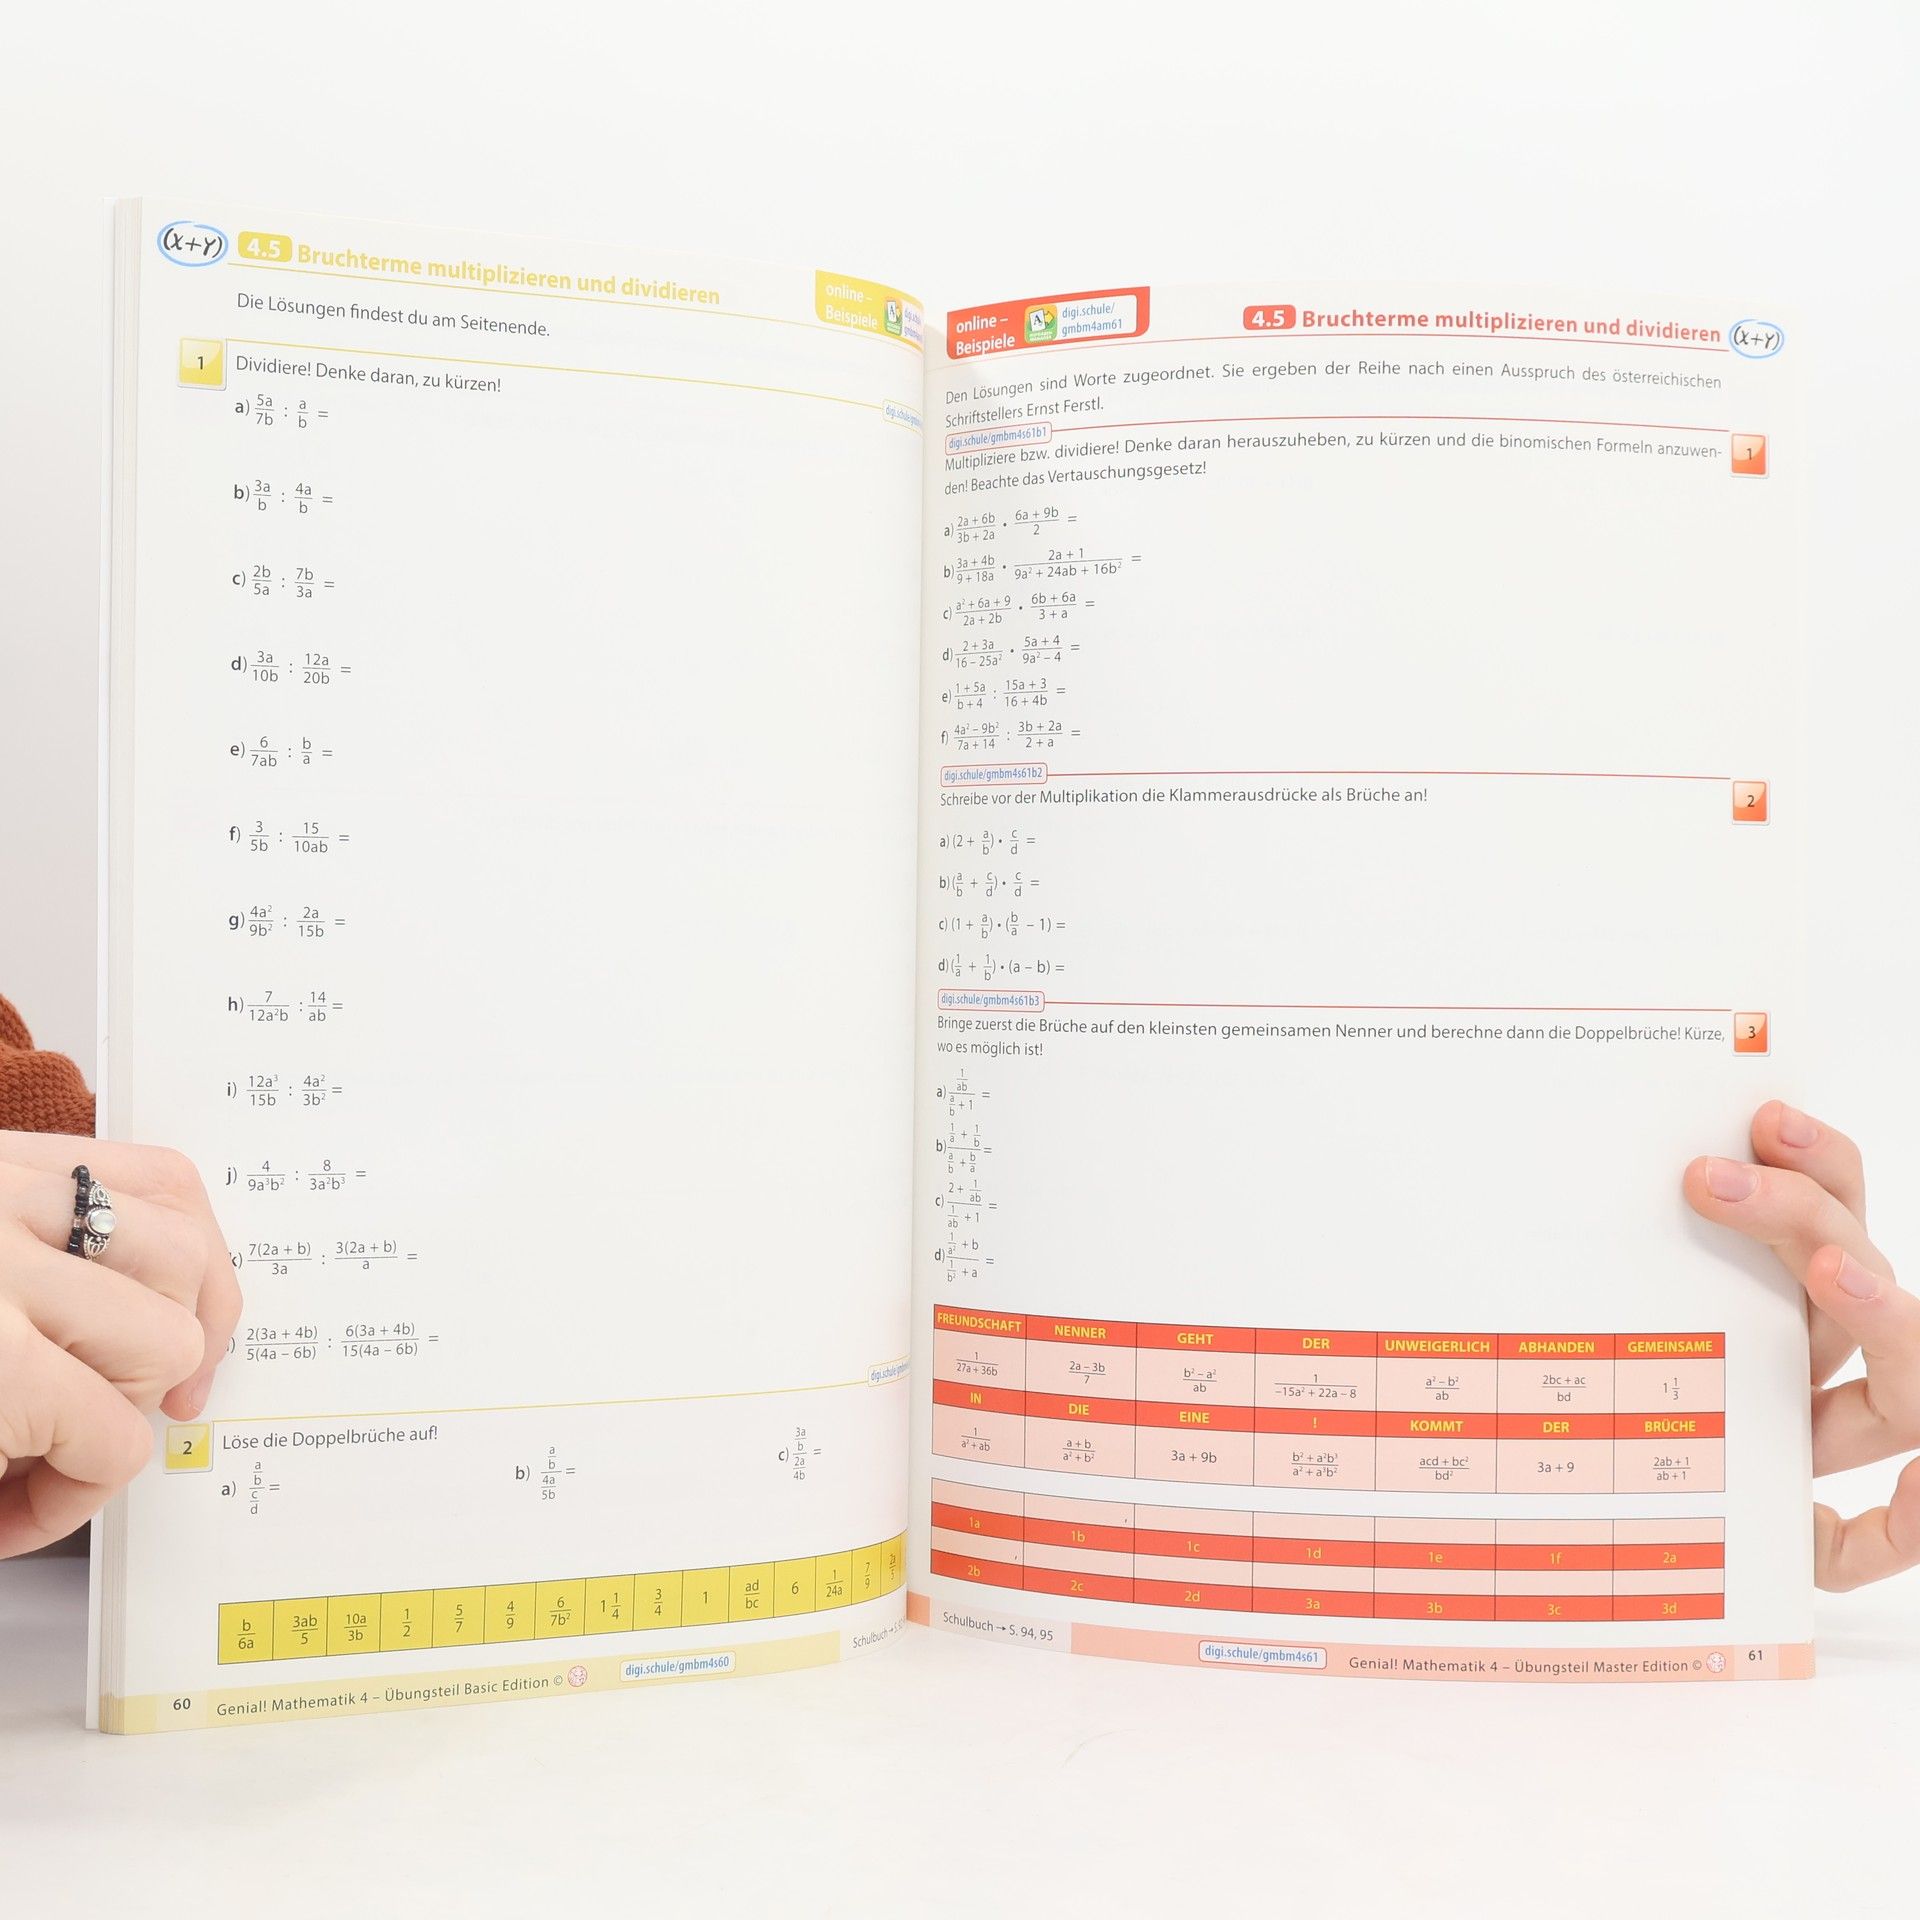 (x+y) 4.5 Bruchterme multiplizieren und dividieren
online –
Beispiele
Die Lösungen findest du am Seitenende.
1 Dividiere! Denke daran, zu kürzen!
a) 5a/7b : a/b =
b) 3a/b : 4a/b =
c) 2b/5a : 7b/3a =
d) 3a/10b : 12a/20b =
e) 6/7ab : b/a =
f) 3/5b : 15/10ab =
g) 4a²/9b² : 2a/15b =
h) 7/12a²b : 14/ab =
i) 12a³/15b : 4a²/3b² =
j) 4/9a³b² : 8/3a²b³ =
k) 7(2a + b)/3a : 3(2a + b)/a =
) 2(3a + 4b)/5(4a – 6b) : 6(3a + 4b)/15(4a – 6b) =
2 Löse die Doppelbrüche auf!
a) (a/b)/(c/d) = b) (a/b)/(4a/5b) = c) (3a/b)/(2a/4b) =
b/6a 3ab/5 10a/3b 1/2 5/7 4/9 6/7b² 1 1/4 3/4 1 ad/bc 6 1/24a 7/9
Schulbuch → S.
60 Genial! Mathematik 4 – Übungsteil Basic Edition © digi.schule/gmbm4s60
online –
Beispiele
digi.schule/
gmbm4am61
4.5 Bruchterme multiplizieren und dividieren (x+y)
Den Lösungen sind Worte zugeordnet. Sie ergeben der Reihe nach einen Ausspruch des österreichischen
Schriftstellers Ernst Ferstl.
digi.schule/gmbm4s61b1
Multipliziere bzw. dividiere! Denke daran herauszuheben, zu kürzen und die binomischen Formeln anzuwen- 1
den! Beachte das Vertauschungsgesetz!
a) (2a + 6b)/(3b + 2a) • (6a + 9b)/2 =
b) (3a + 4b)/(9 + 18a) • (2a + 1)/(9a² + 24ab + 16b²) =
c) (a² + 6a + 9)/(2a + 2b) • (6b + 6a)/(3 + a) =
d) (2 + 3a)/(16 – 25a²) • (5a + 4)/(9a² – 4) =
e) (1 + 5a)/(b + 4) : (15a + 3)/(16 + 4b) =
f) (4a² – 9b²)/(7a + 14) : (3b + 2a)/(2 + a) =
digi.schule/gmbm4s61b2
Schreibe vor der Multiplikation die Klammerausdrücke als Brüche an! 2
a) (2 + a/b) • c/d =
b) (a/b + c/d) • c/d =
c) (1 + a/b) • (b/a – 1) =
d) (1/a + 1/b) • (a – b) =
digi.schule/gmbm4s61b3
Bringe zuerst die Brüche auf den kleinsten gemeinsamen Nenner und berechne dann die Doppelbrüche! Kürze, 3
wo es möglich ist!
a) (1/ab)/(a/b + 1) =
b) (1/a + 1/b)/(a/b + b/a) =
c) (2 + 1/ab)/(1/ab + 1) =
d) (1/a² + b)/(1/b² + a) =
FREUNDSCHAFT NENNER GEHT DER UNWEIGERLICH ABHANDEN GEMEINSAME
1/(27a + 36b) (2a – 3b)/7 (b² – a²)/ab 1/(–15a² + 22a – 8) (a² – b²)/ab (2bc + ac)/bd 1 1/3
IN DIE EINE ! KOMMT DER BRÜCHE
1/(a² + ab) (a + b)/(a² + b²) 3a + 9b (b² + a²b³)/(a² + a³b²) (acd + bc²)/bd² 3a + 9 (2ab + 1)/(ab + 1)
1a 1b , 1c 1d 1e 1f 2a
2b , 2c 2d 3a 3b 3c 3d
Schulbuch → S. 94, 95
digi.schule/gmbm4s61 Genial! Mathematik 4 – Übungsteil Master Edition © 61